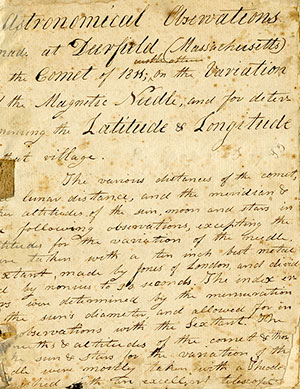 Astronomical Observations
made at Durfield (Massachusetts)
the Comet of 1811, on the Variation
the Magnetic Needle, and for deter-
mining the Latitude & Longitude
that village.
The various distances of the comet,
lunar distances, and the meridian &
altitudes of the sun, moon and stars in
following observations, excepting the
altitudes for the variation of the needle,
taken with a ten inch best metal
sextant, made by Jones of London, and divid
by nonius to 30 seconds. The index
was determined by the mensuration
the sun's diameter, and allowed for in
observations with the Sextant. The
& altitudes of the comet &
the sun & stars for the variation of the
were mostly taken with a Theodo
with an excellent telescope